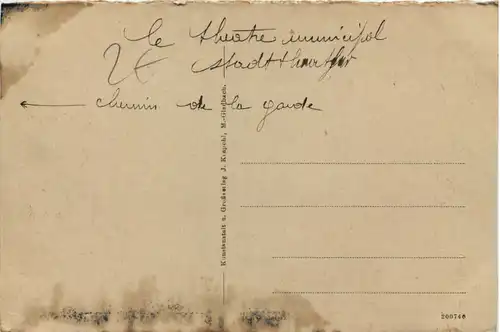 le theatre municipal
2€ stadttheather
← chemin de la garde
Kunstanstalt u. Großverlag J. Koepchl, M.Gladbach.
200746